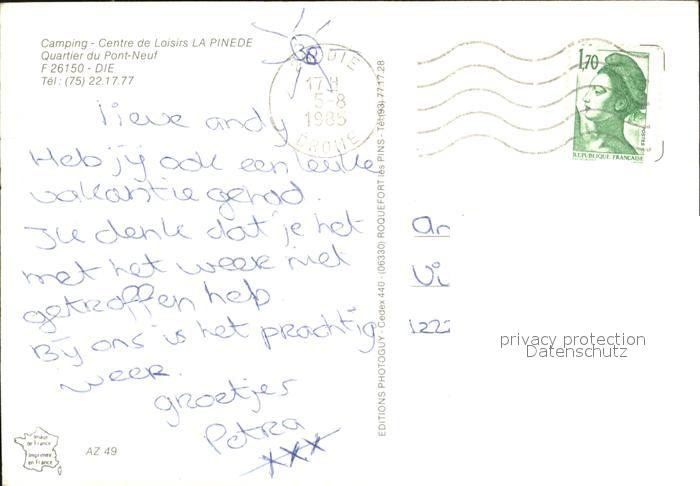 Camping - Centre de Loisirs LA PINEDE
Quartier du Pont-Neuf
F 26150 - DIE
Tél : (75) 22.17.77
DIE
17 H
5-8
1985
DROME
1,70
POSTES
REPUBLIQUE FRANCAISE
lieve andy
Heb jij ook een leuke
vakantie gehad.
Ik denk dat je het
met het weer niet
getroffen heb.
Bij ons is het prachtig
weer.
groetjes
Petra
xxx
EDITIONS PHOTOGUY - Cedex 440 - (06330) ROQUEFORT les PINS - Tél (93) 77.17.28
An
Vi
122
privacy protection
Datenschutz
Image de France
Imprimée en France
AZ 49